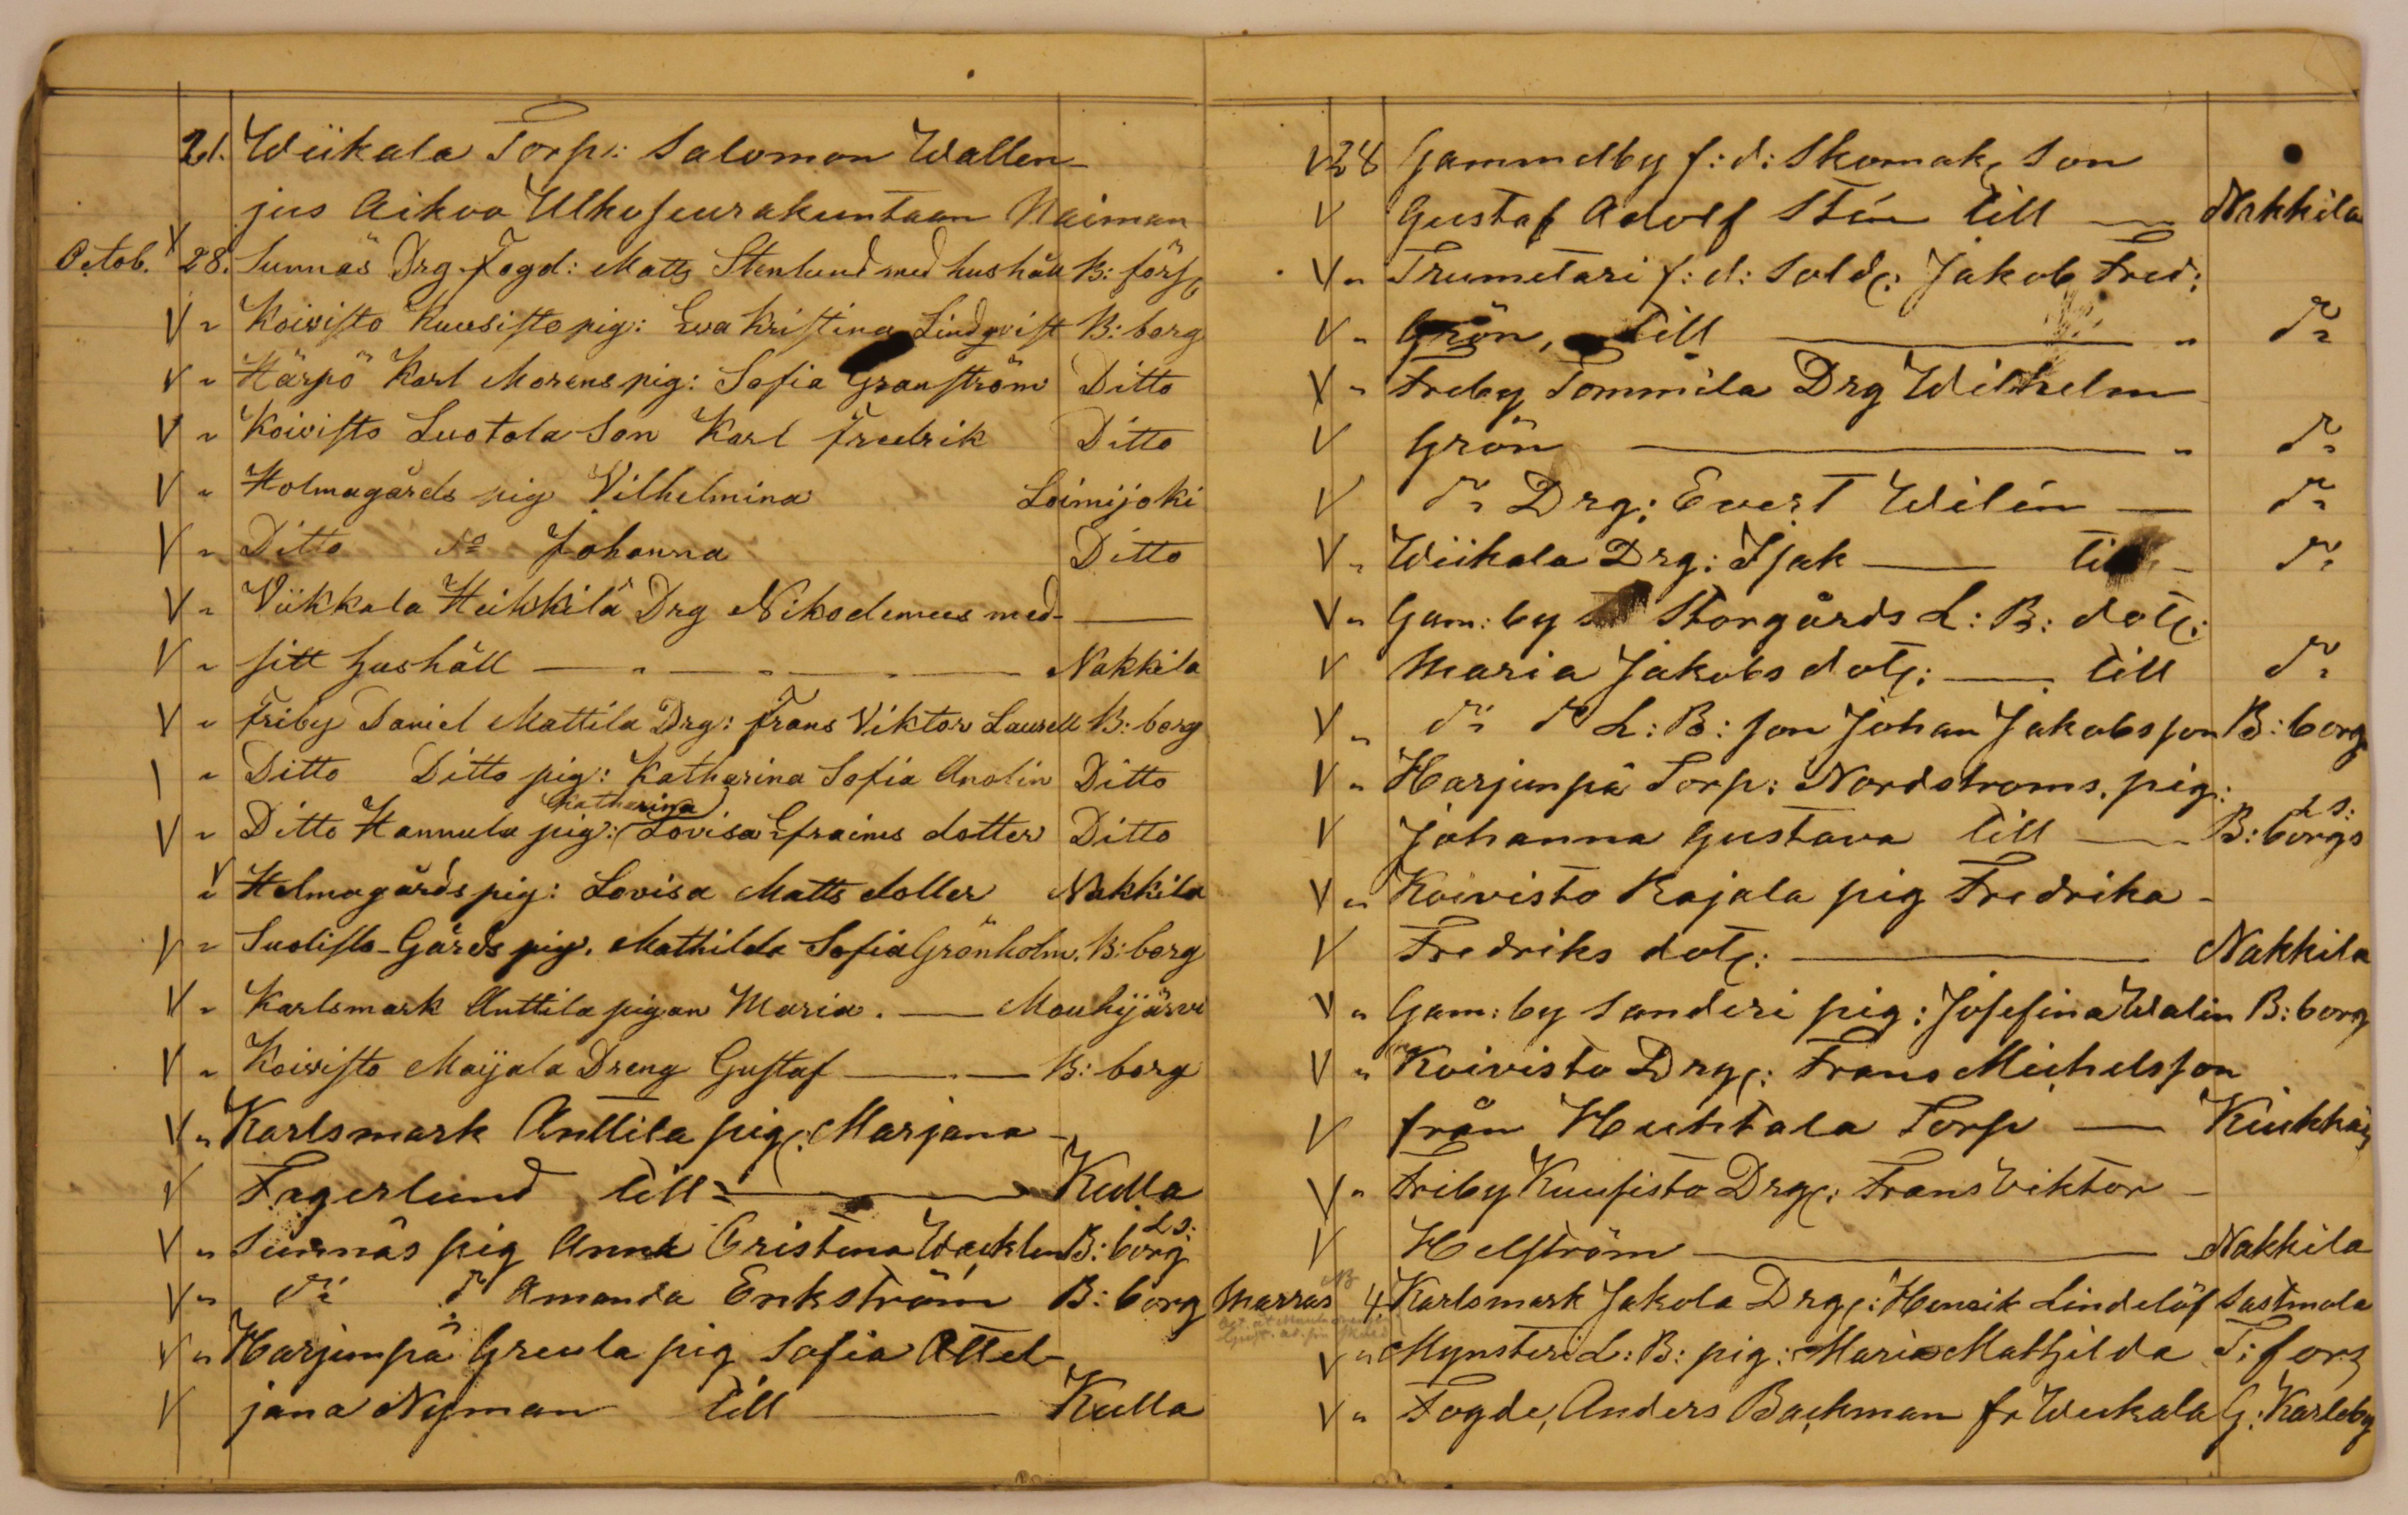 21. Wiikala Torp: Salomon Wallen-
jus Aikoo Ulkoseurakuntaan Naiman
Octob. V 28. Sunnäs Drg. Fogd: Matts Stenlund med hushåll B: förs
V " Koivisto Kuusisto pig: Eva Kristina Lindqvist B: borg
V " Härpö Karl Morens pig: Sofia Granström Ditto
V " Koivisto Luotola Son Karl Fredrik Ditto
V " Holmagårds pig Vilhelmina Loimijoki
V " Ditto do Johanna Ditto
V " Viikkala Heikkilä Drg Nikodemus med-
V " sitt hushåll — " — " — " — Nakkila
V " Friby Daniel Mattila Drg: Frans Viktor Laurell B: borg
V " Ditto Ditto pig: Katharina Sofia Anolin Ditto
Katharina
V " Ditto Hannula pig: (Lovisa) Efraims dotter Ditto
V " Holmagårds pig: Lovisa Matts dotter Nakkila
V " Suosisto-Gårds pig. Mathilda Sofia Grönholm. B: borg
V " Karlsmark Anttila pigan Maria. — Mouhijärvi
V " Koivisto Maijala Dreng Gustaf — . — B: borg
V " Karlsmark Anttila pig: Marjana -
V Fagerlund till — Kulla
V " Sunnäs pig Anna Cristina Wacklen B: borg Ls:
V " do do Amanda Enkström B: borg
V " Harjunpä Greula pig Sofia Attel-
V jana Nyman till — Kulla
V 28 Gammelby f: d: Skomak, Son
V Gustaf Adolf Stén till — Nakkila
V " Trumetari f: d: Sold: Jakob Fred:
V " Grön, till — " do
V " Freby Tommila Drg Wilhelm
V Grön — " do
V do Drg: Evert Wilén — do
V " Wiikala Drg: Isak — till - do
V " Gam: by Storgårds L: B: dot:
V Maria Jakobs dot: — till do
V " do do L: B: son Johan Jakobsson B: borg
V " Harjunpä Torp: Nordstroms, pig:
V Johanna Gustava till — B: borgs Ls:
V " Koivisto Rajala pig Fredrika -
V Fredriks dot: — Nakkila
V " Gam: by Sanderi pig: Josefina Walin B: borg
V " Koivisto Drg: Frans Michelsson
V från Huhtala Torp — Kiukkais
V " Friby Kuusisto Drg: Frans Viktor -
V Helström — Nakkila
Marras 4 Karlsmark Jakola Drg: Henrik Lindelöf Sastmola
V " Mynsteri L: B: pig: Maria Mathilda T: fors
V " Fogde, Anders Backman fr Wiikala G: Karleby